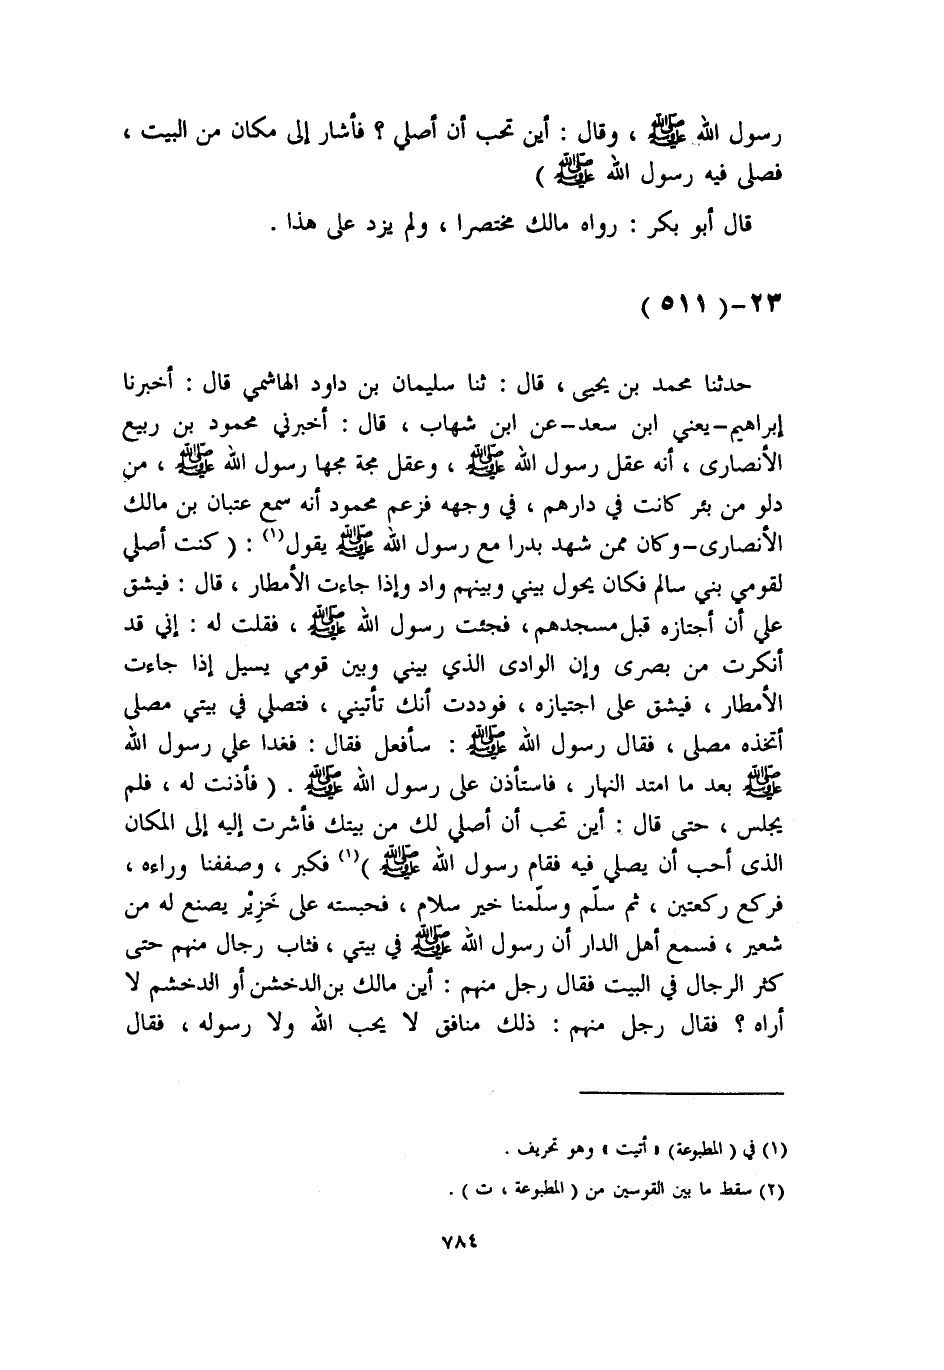 رسول الله ﷺ ، وقال : أين تحب أن أصلي ؟ فأشار إلى مكان من البيت ،
فصلى فيه رسول الله ﷺ )
قال أبو بكر : رواه مالك مختصرا ، ولم يزد على هذا .
٢٣-( ٥١١ )
حدثنا محمد بن يحيى ، قال : ثنا سليمان بن داود الهاشمي قال : أخبرنا
إبراهيم-يعني ابن سعد-عن ابن شهاب ، قال : أخبرني محمود بن ربيع
الأنصارى ، أنه عقل رسول الله ﷺ ، وعقل مجة مجها رسول الله ﷺ ، من
دلو من بئر كانت في دارهم ، في وجهه فزعم محمود أنه سمع عتبان بن مالك
الأنصارى-وكان ممن شهد بدرا مع رسول الله ﷺ يقول(١) : ( كنت أصلي
لقومي بني سالم فكان يحول بيني وبينهم واد وإذا جاءت الأمطار ، قال : فيشق
علي أن أجتازه قبل مسجدهم ، فجئت رسول الله ﷺ ، فقلت له : إني قد
أنكرت من بصرى وإن الوادى الذي بيني وبين قومي يسيل إذا جاءت
الأمطار ، فيشق على اجتيازه ، فوددت أنك تأتيني ، فتصلي في بيتي مصلى
أتخذه مصلى ، فقال رسول الله ﷺ : سأفعل فقال : فغدا علي رسول الله
ﷺ بعد ما امتد النهار ، فاستأذن على رسول الله ﷺ . ( فأذنت له ، فلم
يجلس ، حتى قال : أين تحب أن أصلي لك من بيتك فأشرت إليه إلى المكان
الذى أحب أن يصلي فيه فقام رسول الله ﷺ )(١) فكبر ، وصففنا وراءه ،
فركع ركعتين ، ثم سلّم وسلّمنا خير سلام ، فحبسته على خَزِيْر يصنع له من
شعير ، فسمع أهل الدار أن رسول الله ﷺ في بيتي ، فثاب رجال منهم حتى
كثر الرجال في البيت فقال رجل منهم : أين مالك بن الدخشن أو الدخشم لا
أراه ؟ فقال رجل منهم : ذلك منافق لا يحب الله ولا رسوله ، فقال
(١) في ( المطبوعة ) « أتيت » وهو تحريف .
(٢) سقط ما بين القوسين من ( المطبوعة ، ت ) .
٧٨٤